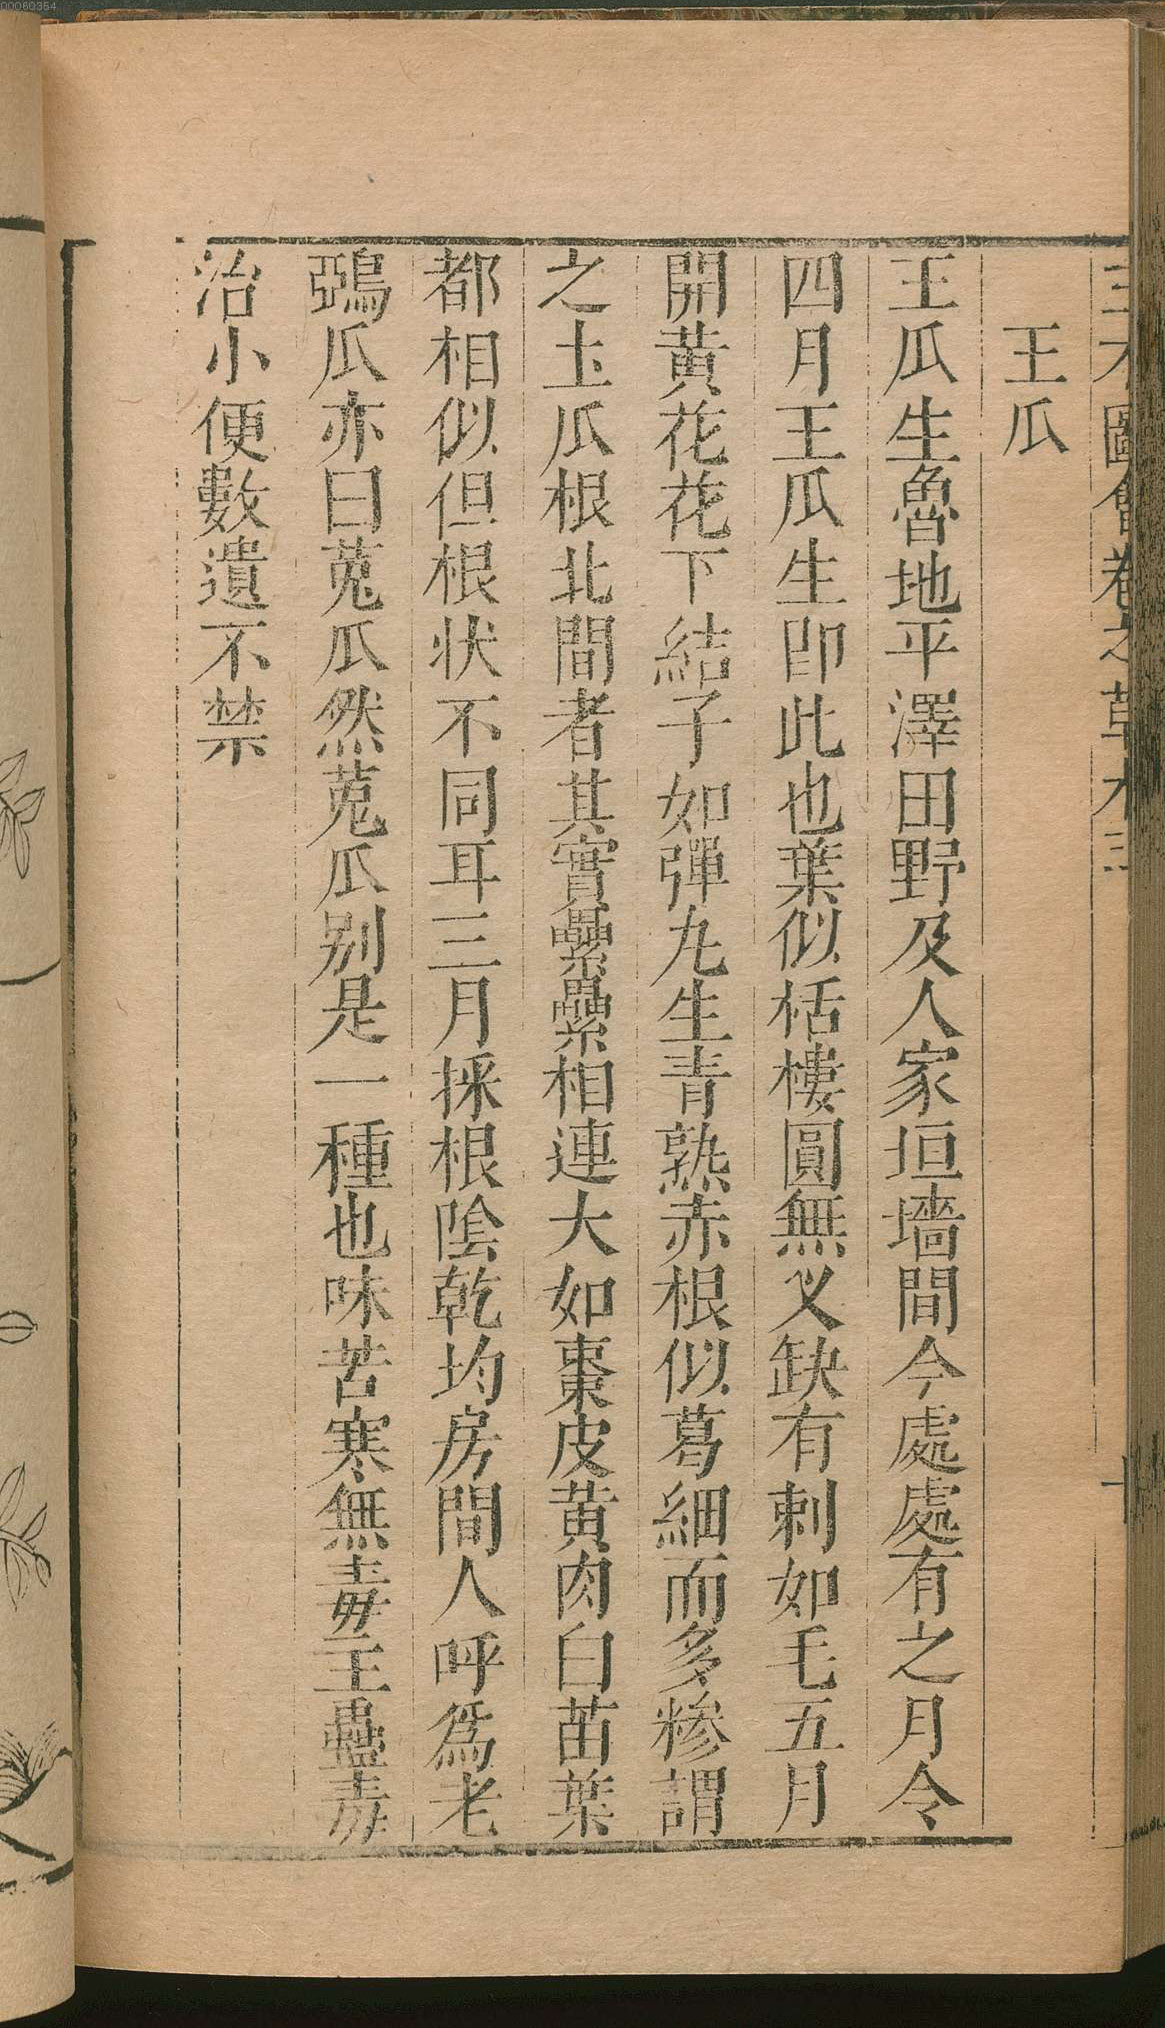 三才圖會卷之草木三
王瓜
王瓜生魯地平澤田野及人家垣墻間今處處有之月令
四月王瓜生卽此也葉似栝樓圓無乂缺有刺如毛五月
開黃花花下結子如彈九生青熟赤根似葛細而多糝謂
之土瓜根北間者其實纍纍相連大如棗皮黃肉白苗葉
都相似但根狀不同耳三月採根陰乾均房間人呼爲老
鵶瓜亦曰菟瓜然菟瓜别是一種也味苦寒無毒主蠱毒
治小便數遺不禁
00060354